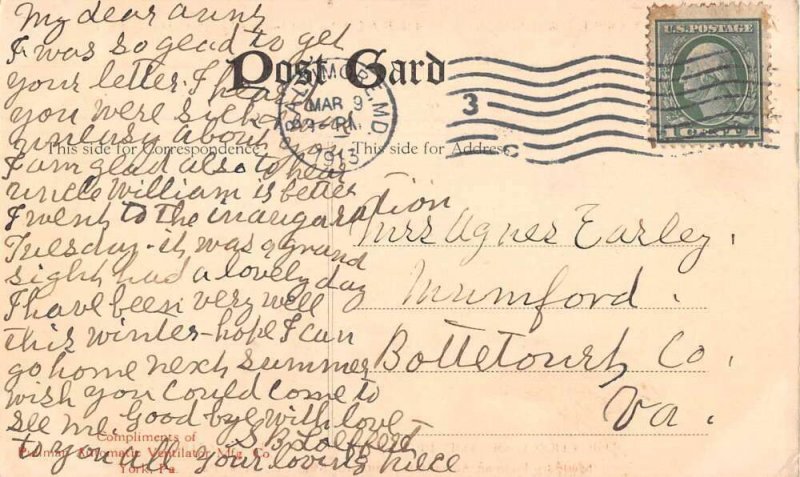 My dear aunt
I was so glad to get
your letter. I hear
you were sick & I feel
uneasy about you
I am glad also to hear
uncle William is better
I went to the inauguration
Tuesday - it was a grand
sight had a lovely day
I have been very well
this winter - hope I can
go home next summer
wish you could come to
see me. Good bye with love
S B Loeffert
to you all your loving niece
Post Card
BALTIMORE, MD.
MAR 9
PM
1913
3
C
U.S. POSTAGE
1 CENT 1
This side for Correspondence
This side for Address
Mrs Agnes Earley,
Mumford.
Bottetourt Co,
Va.
Compliments of
Pullman Automatic Ventilator Mfg. Co
York, Pa.